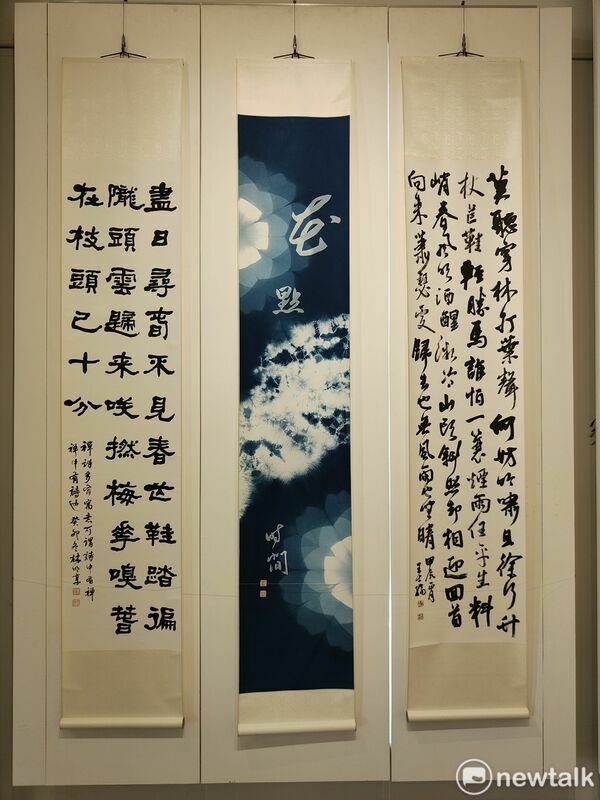 莫聽穿林打葉聲何妨吟嘯且徐行竹
杖芒鞋輕勝馬誰怕一蓑煙雨任平生料
峭春風吹酒醒微冷山頭斜照卻相迎回首
向來蕭瑟處歸去也無風雨也無晴 甲辰
花
點
时間
盡日尋春不見春芒鞋踏徧
隴頭雲歸來咲撚梅華嗅春
在枝頭已十分
禪詩多有寓意可謂詩中有禪
禪中有詩也 癸卯冬林
newtalk